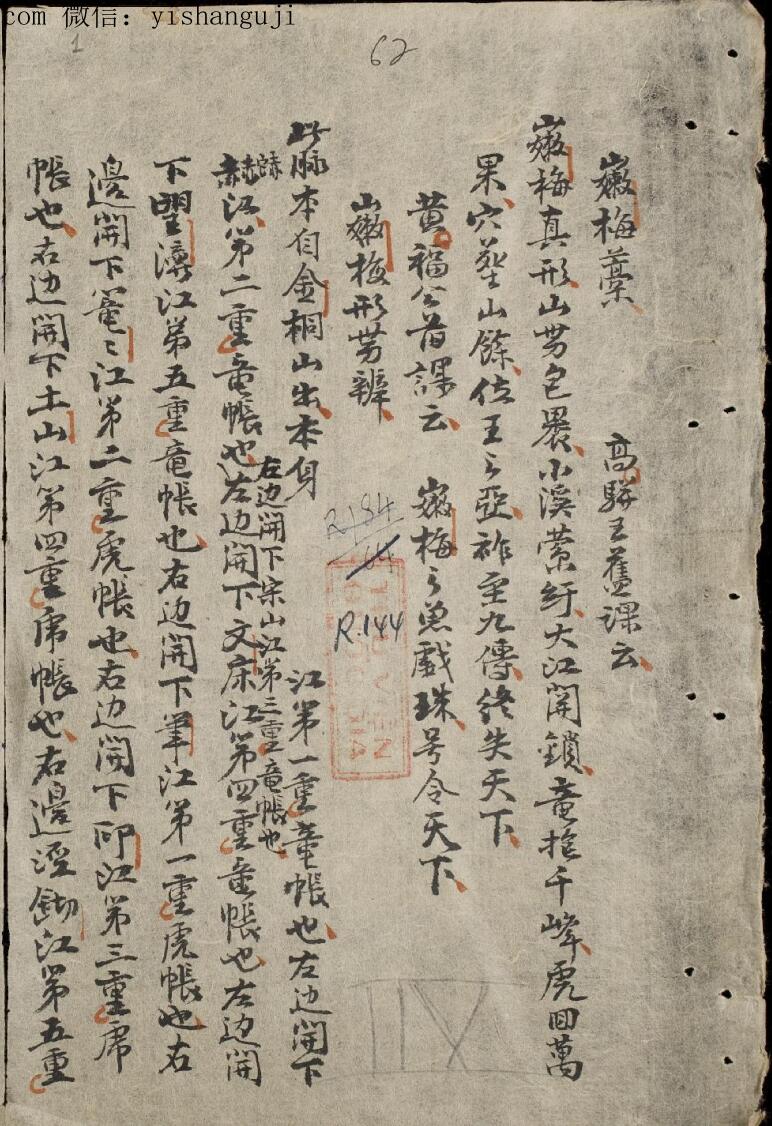 com 微信：yishanguji
1
62
嫩梅藁 高駢王舊課云
嫩梅真形山势包裹小溪縈紆大江開鎖竜抱千峰虎回萬
果穴𦵏山餘位王之亞祚至九傳終失天下
黄福公旨課云 嫩梅之鬼戲珠号令天下
山嫩梅形势辨
此脉本自金桐山出本身 江第一重竜帳也左边開下
赤江第二重竜帳也左边開下文床江第四重竜帳也左边開
左边開下宗山江第三重竜帳也
下望江第五重竜帳也右边開下筆江第一重虎帳也右
邊開下篭〻江第二重虎帳也右边開下印江第三重虎
帳也右边開下土山江第四重虎帳也右邊江第五重
R.144
VII